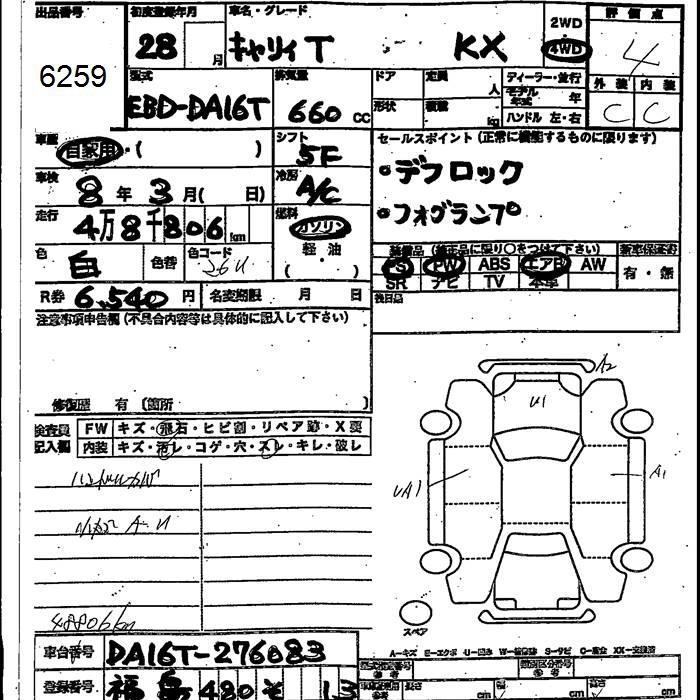 出品番号 初度登録年月 車名・グレード 2WD 評価点
6259 28 月 キャリィT KX 4WD 4
型式 排気量 ドア 定員 人 ディーラー・並行 外装 内装
EBD-DA16T 660 CC 形状 積載 kg モデル年式 年 C C
ハンドル 左・右
車歴 自家用・( ) シフト 5F セールスポイント(正常に機能するものに限ります)
車検 8年 3月( 日) 冷房 A/C ・デフロック
走行 4万8千806km 燃料 ガソリン ・フォグランプ
軽・油
( )
色 白 色替 色コード 26U 装備品(純正品に限り○をつけて下さい) 新車保証書
PS PW ABS エアB AW 有・無
SR ナビ TV 本革
R券 6,540円 名変期限 月 日 後日品
注意事項申告欄(不具合内容等は具体的に記入して下さい)
修復歴 有 〔箇所 〕
検査員 FW キズ・飛石・ヒビ割・リペア跡・X要
記入欄 内装 キズ・汚レ・コゲ・穴・スレ・キレ・破レ
A2
U1
UA1
A1
48806km
スペア
車台番号 DA16T-276083
A-キズ E-エクボ U-凹み W-補修跡 S-サビ C-腐食 XX-交換済
登録番号 福島480そ 13
型式指定番号 類別区分番号
cm cm cm